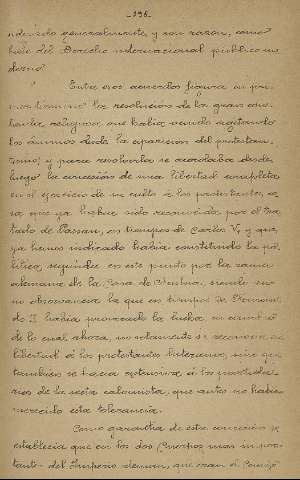 -196-
generalmente, y con razón, como
base del Derecho internacional público mo
derno.
Entre esos acuerdos figura en pri
mer término la resolución de la gran cues
tión religiosa que había venido agitando
los ánimos desde la aparición del protestan
tismo; y para resolverla se acordaba desde
luego la concesión de una libertad completa
en el ejercicio de su culto á los protestantes, co
sa que ya hubiese sido reconocida por el Tra
tado de Passau, en tiempos de Carlos V, y que,
ya hemos indicado había constituido la po
lítica seguida en este punto por la rama
alemana de la Casa de Austria, siendo su
no observancia la que en tiempos de Fernan
do II había provocado la lucha, en virtud
de lo cual ahora, no solamente se reconoce su
libertad á los protestantes luteranos, sino que
también se hacía extensiva á los partida
rios de la secta calvinista, que antes no había
merecido esta tolerancia.
Como garantía de esta concesión se
establecía que en los dos Cuerpos más impor
tantes del Imperio alemán, que eran el Consejo